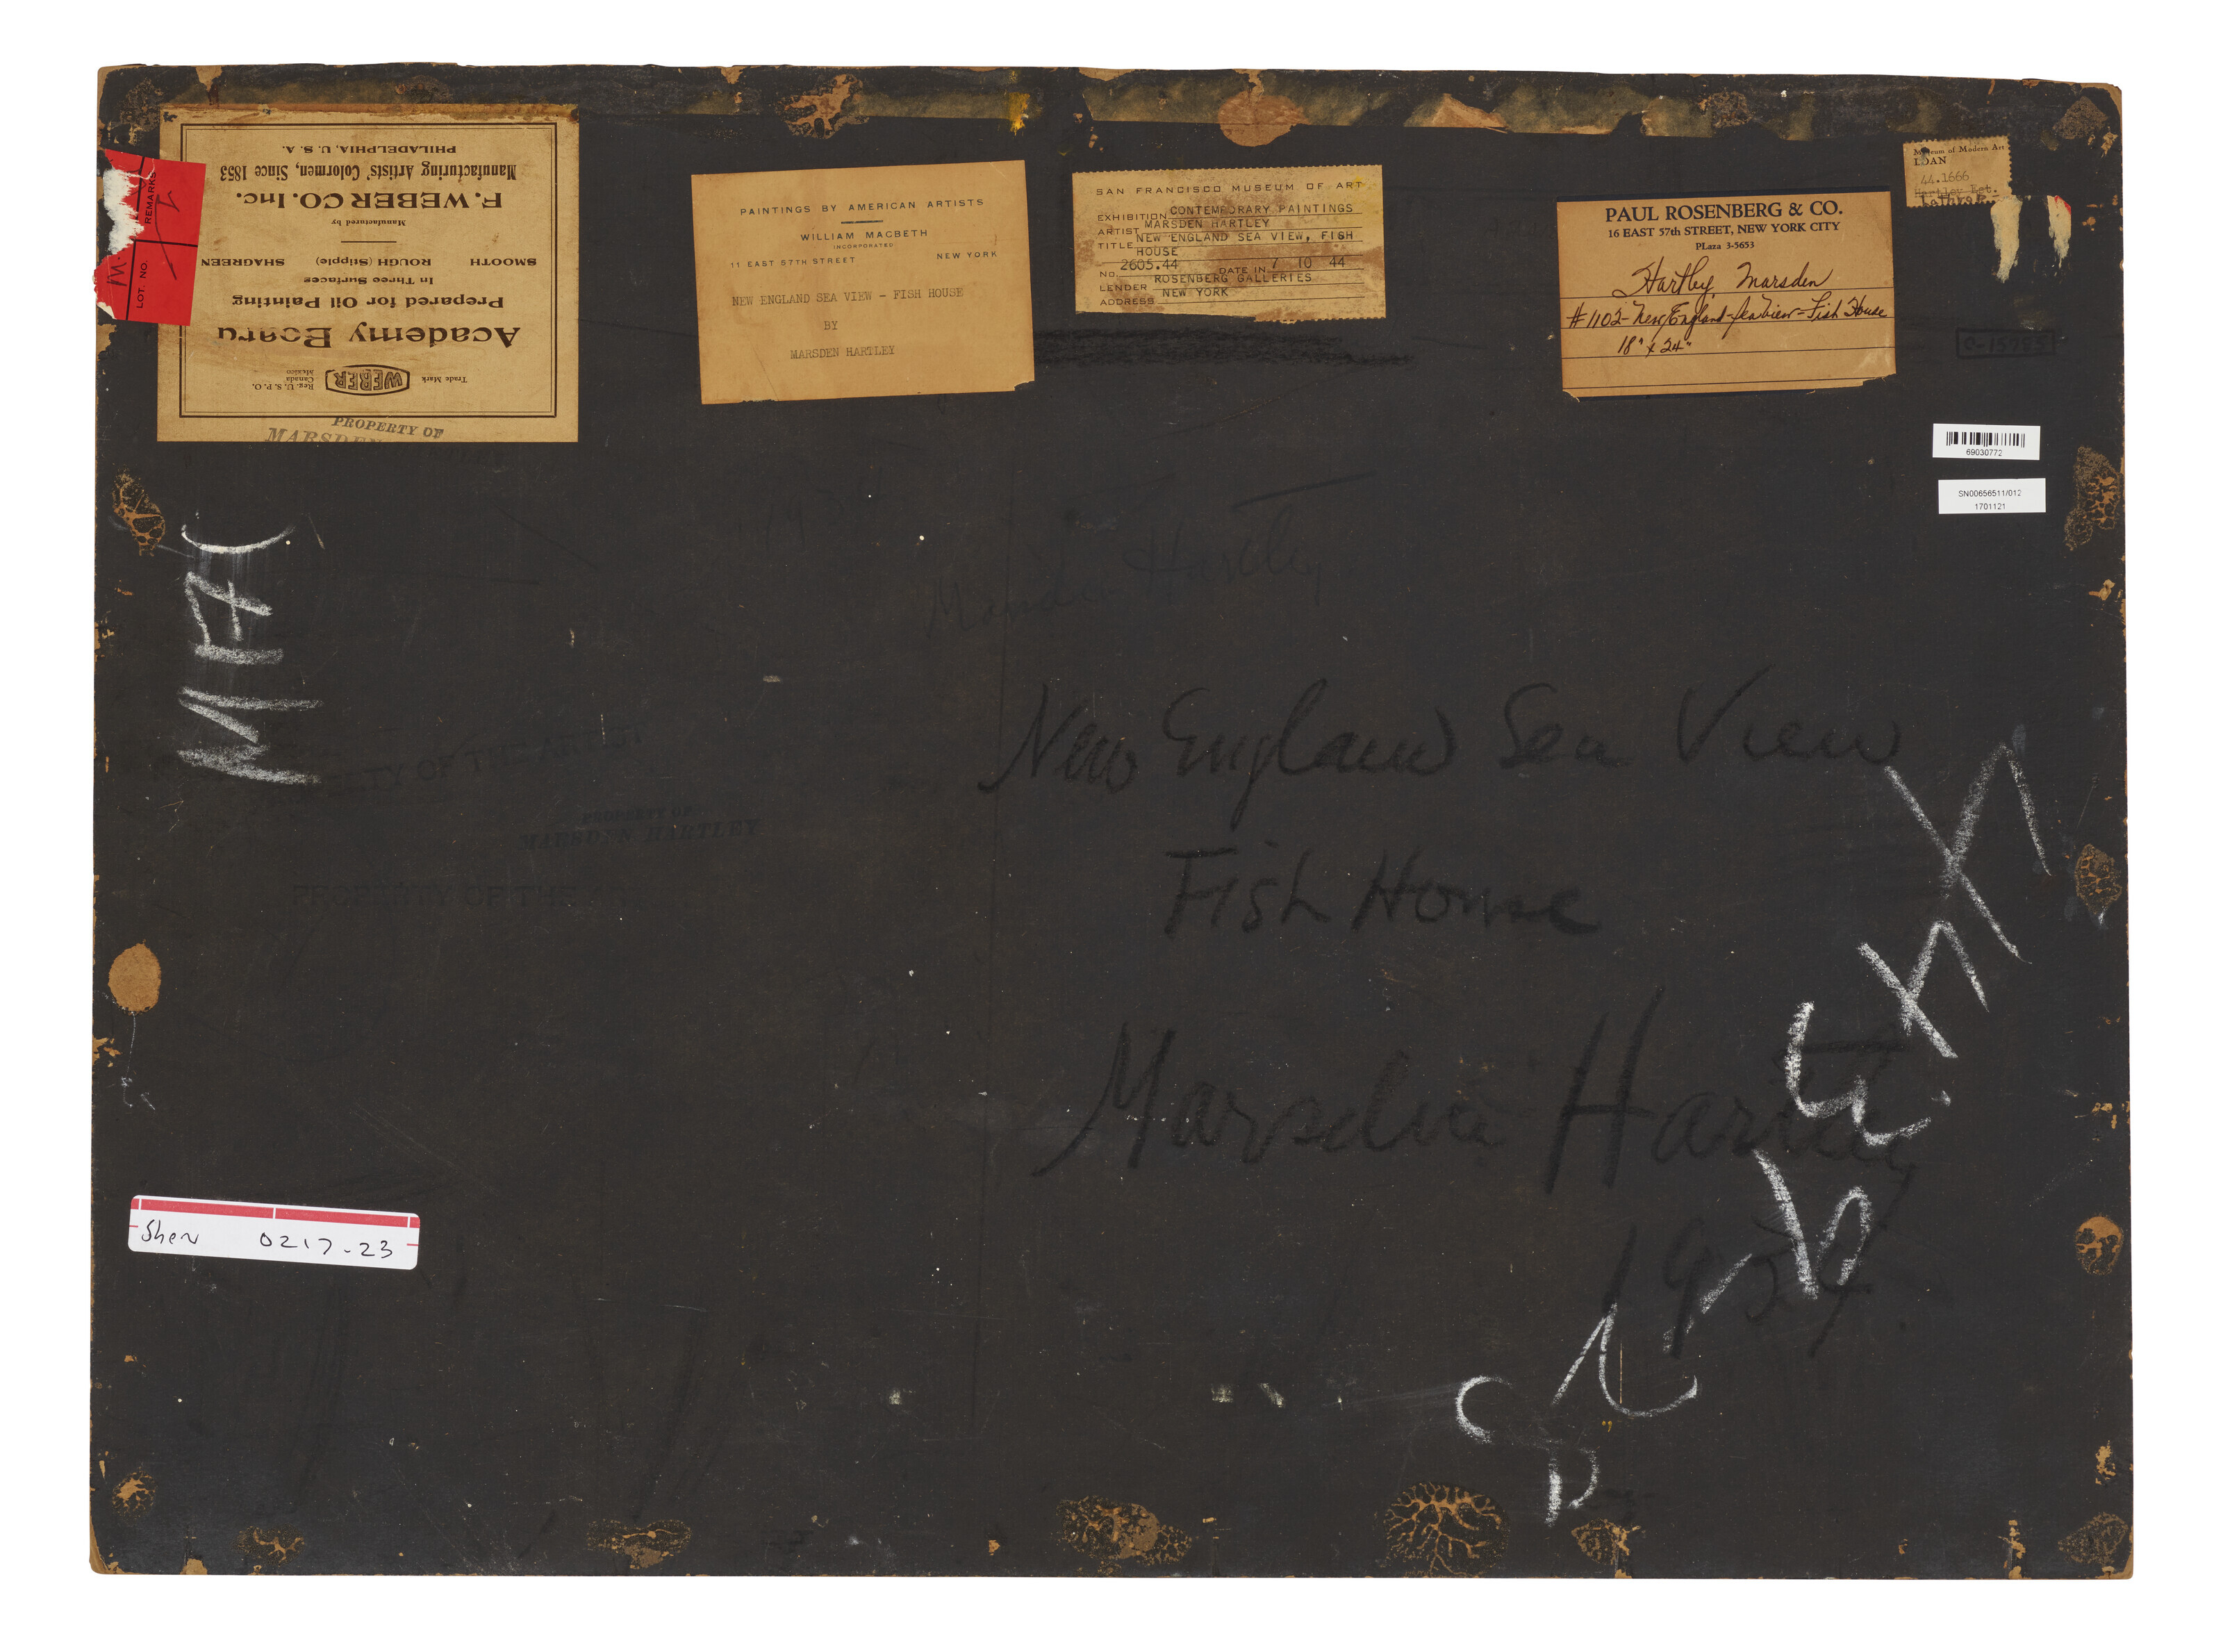 Academy Board
Prepared for Oil Painting
In Three Surfaces
SMOOTH ROUGH (Stipple) SHAGREEN
Manufactured by
F. WEBER CO. Inc.
Manufacturing Artists' Colormen, Since 1853
PHILADELPHIA, U. S. A.
Trade Mark
WEBER
Reg. U. S. P. O.
Canada
Mexico
PROPERTY OF
MARSDEN
REMARKS
LOT. NO.
PAINTINGS BY AMERICAN ARTISTS
WILLIAM MACBETH
INCORPORATED
11 EAST 57TH STREET NEW YORK
NEW ENGLAND SEA VIEW - FISH HOUSE
BY
MARSDEN HARTLEY
SAN FRANCISCO MUSEUM OF ART
EXHIBITION CONTEMPORARY PAINTINGS
ARTIST MARSDEN HARTLEY
TITLE NEW ENGLAND SEA VIEW, FISH
HOUSE
No. 2605.44 DATE IN 7 10 44
LENDER ROSENBERG GALLERIES
ADDRESS NEW YORK
PAUL ROSENBERG & CO.
16 EAST 57th STREET, NEW YORK CITY
PLaza 3-5653
Hartley Marsden
#1102-New England-Sea View-Fish House
18" x 24"
Museum of Modern Art
LOAN
44.1666
Hartley Est.
69030772
SN00656511/012
1701121
Marsden Hartley
New England Sea View
Fish House
Marsden Hartley
1934
M 17
PROPERTY OF THE
PROPERTY OF
MARSDEN HARTLEY
PROPERTY OF THE
Shen 0217-23